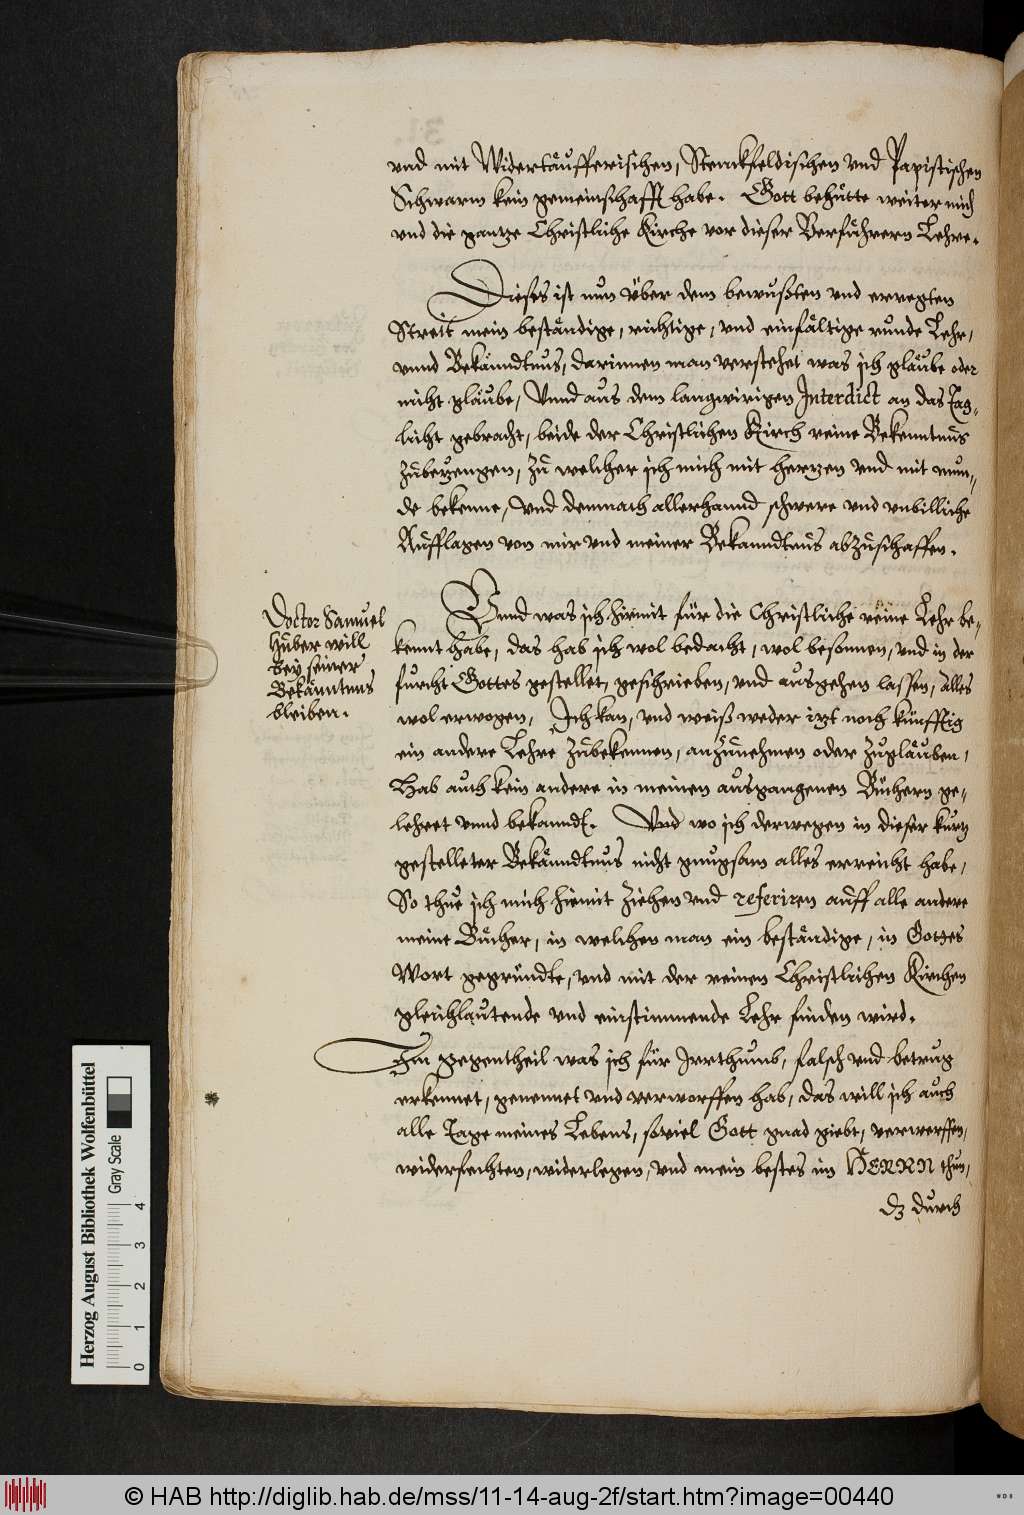 vnd mit Widertäufferischen, Stenckfeldischen vnd Papistischen
Schwarm kein gemeinschafft habe. Gott behütte weiter mich
vnd die gantze Christliche Kirche vor dieser Verführern Lehre.
Dieses ist nun über dem bewußten vnd erregten
Streit mein beständige, richtige, vnd einfältige runde Lehr,
vnnd Bekändtnus, darinnen man verstehet was ich gläube oder
nicht gläube, Vnnd aus dem langwirigen Interdict an das Tag-
licht gebracht, beide der Christlichen Kirch reine Bekenntnüs
zubezeugen, zu welcher ich mich mit hertzen vnd mit mun-
de bekenne, Vnd demnach allerhannd schwere vnd vnbilliche
Aufflagen von mir vnd meiner Bekanndtnüs abzuschaffen.
Doctor Samuel
Huber will
bey seiner
Bekäntnus
bleiben.
Vnnd was ich hirmit für die Christliche reine Lehr be-
kennt habe, das hab ich wol bedacht, wol besonnen, vnd in der
furcht Gottes gestellet, geschrieben, vnd ausgehen lassen, Alles
wol erwogen, Ich kan, vnd weiß weder itzt noch künfftig
ein andere Lehre zubekennen, anzunehmen oder zugläuben,
Hab auch kein andere in meinen ausgangenen Büchern ge-
lehret vnnd bekanndt. Vnd wo ich derwegen in dieser kurtz
gestelleter Bekändtnus nicht gnugsam alles erreicht habe,
So thue ich mich hiemit ziehen vnd referiren auff alle andere
meine Bücher, in welchen man ein beständige, in Gottes
Wort gegründte, vnd mit der reinen Christlichen Kirchen
gleichlautende vnd einstimmende Lehr finden wird.
Im gegentheil was ich für Irrthumb, falsch vnd betrug
erkennet, genennet vnd verworffen hab, das will ich auch
alle Tage meines Lebens, soviel Gott gnad giebt, verwerffen,
widerfechten, widerlegen, vnd mein bestes im HERRN thun,
dz durch
Herzog August Bibliothek Wolfenbüttel
Gray Scale
0 1 2 3 4
© HAB http://diglib.hab.de/mss/11-14-aug-2f/start.htm?image=00440